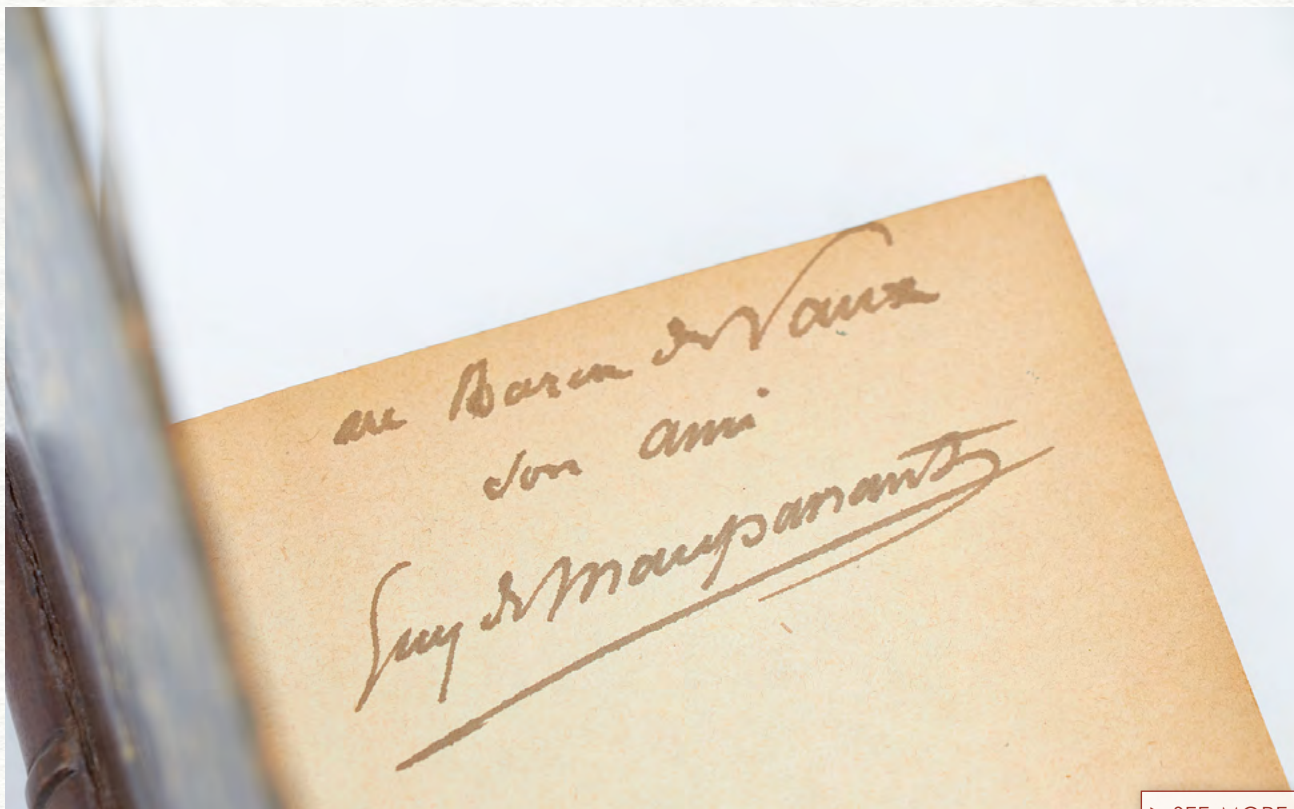 au Baron de Vaux
son ami
Guy de Maupassant
SEE MORE